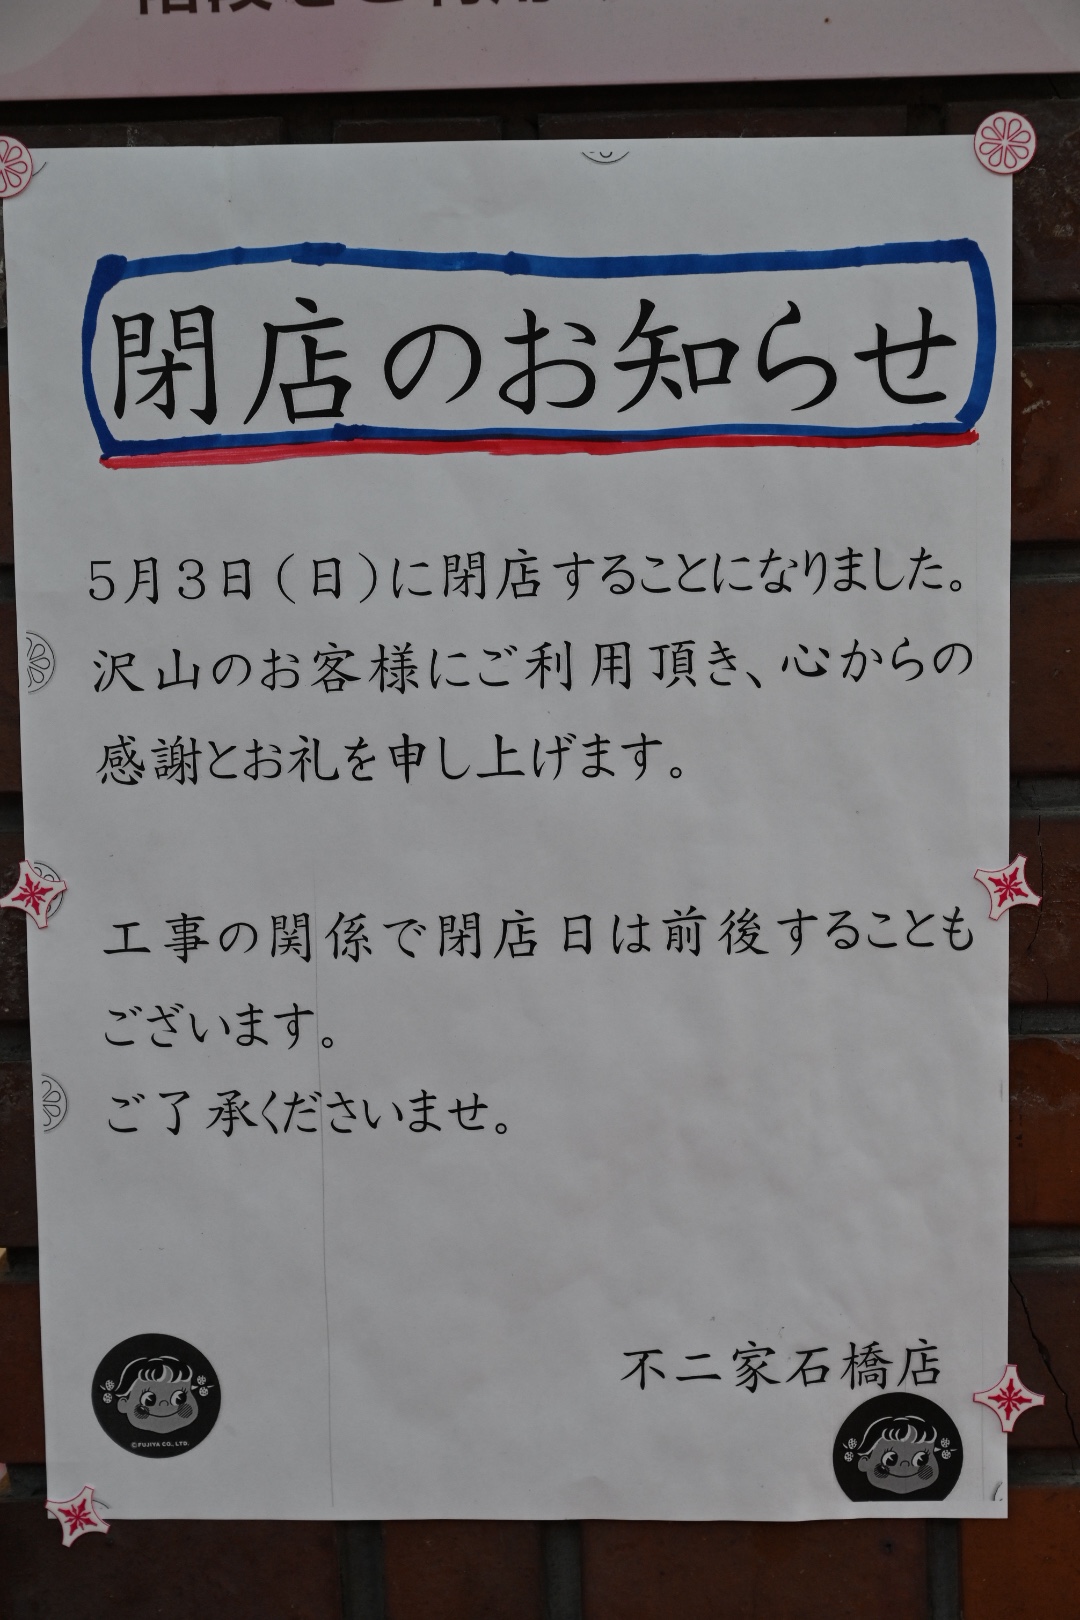 閉店のお知らせ
5月3日(日)に閉店することになりました。
沢山のお客様にご利用頂き、心からの
感謝とお礼を申し上げます。
工事の関係で閉店日は前後することも
ございます。
ご了承くださいませ。
不二家石橋店
©FUJIYA CO., LTD.